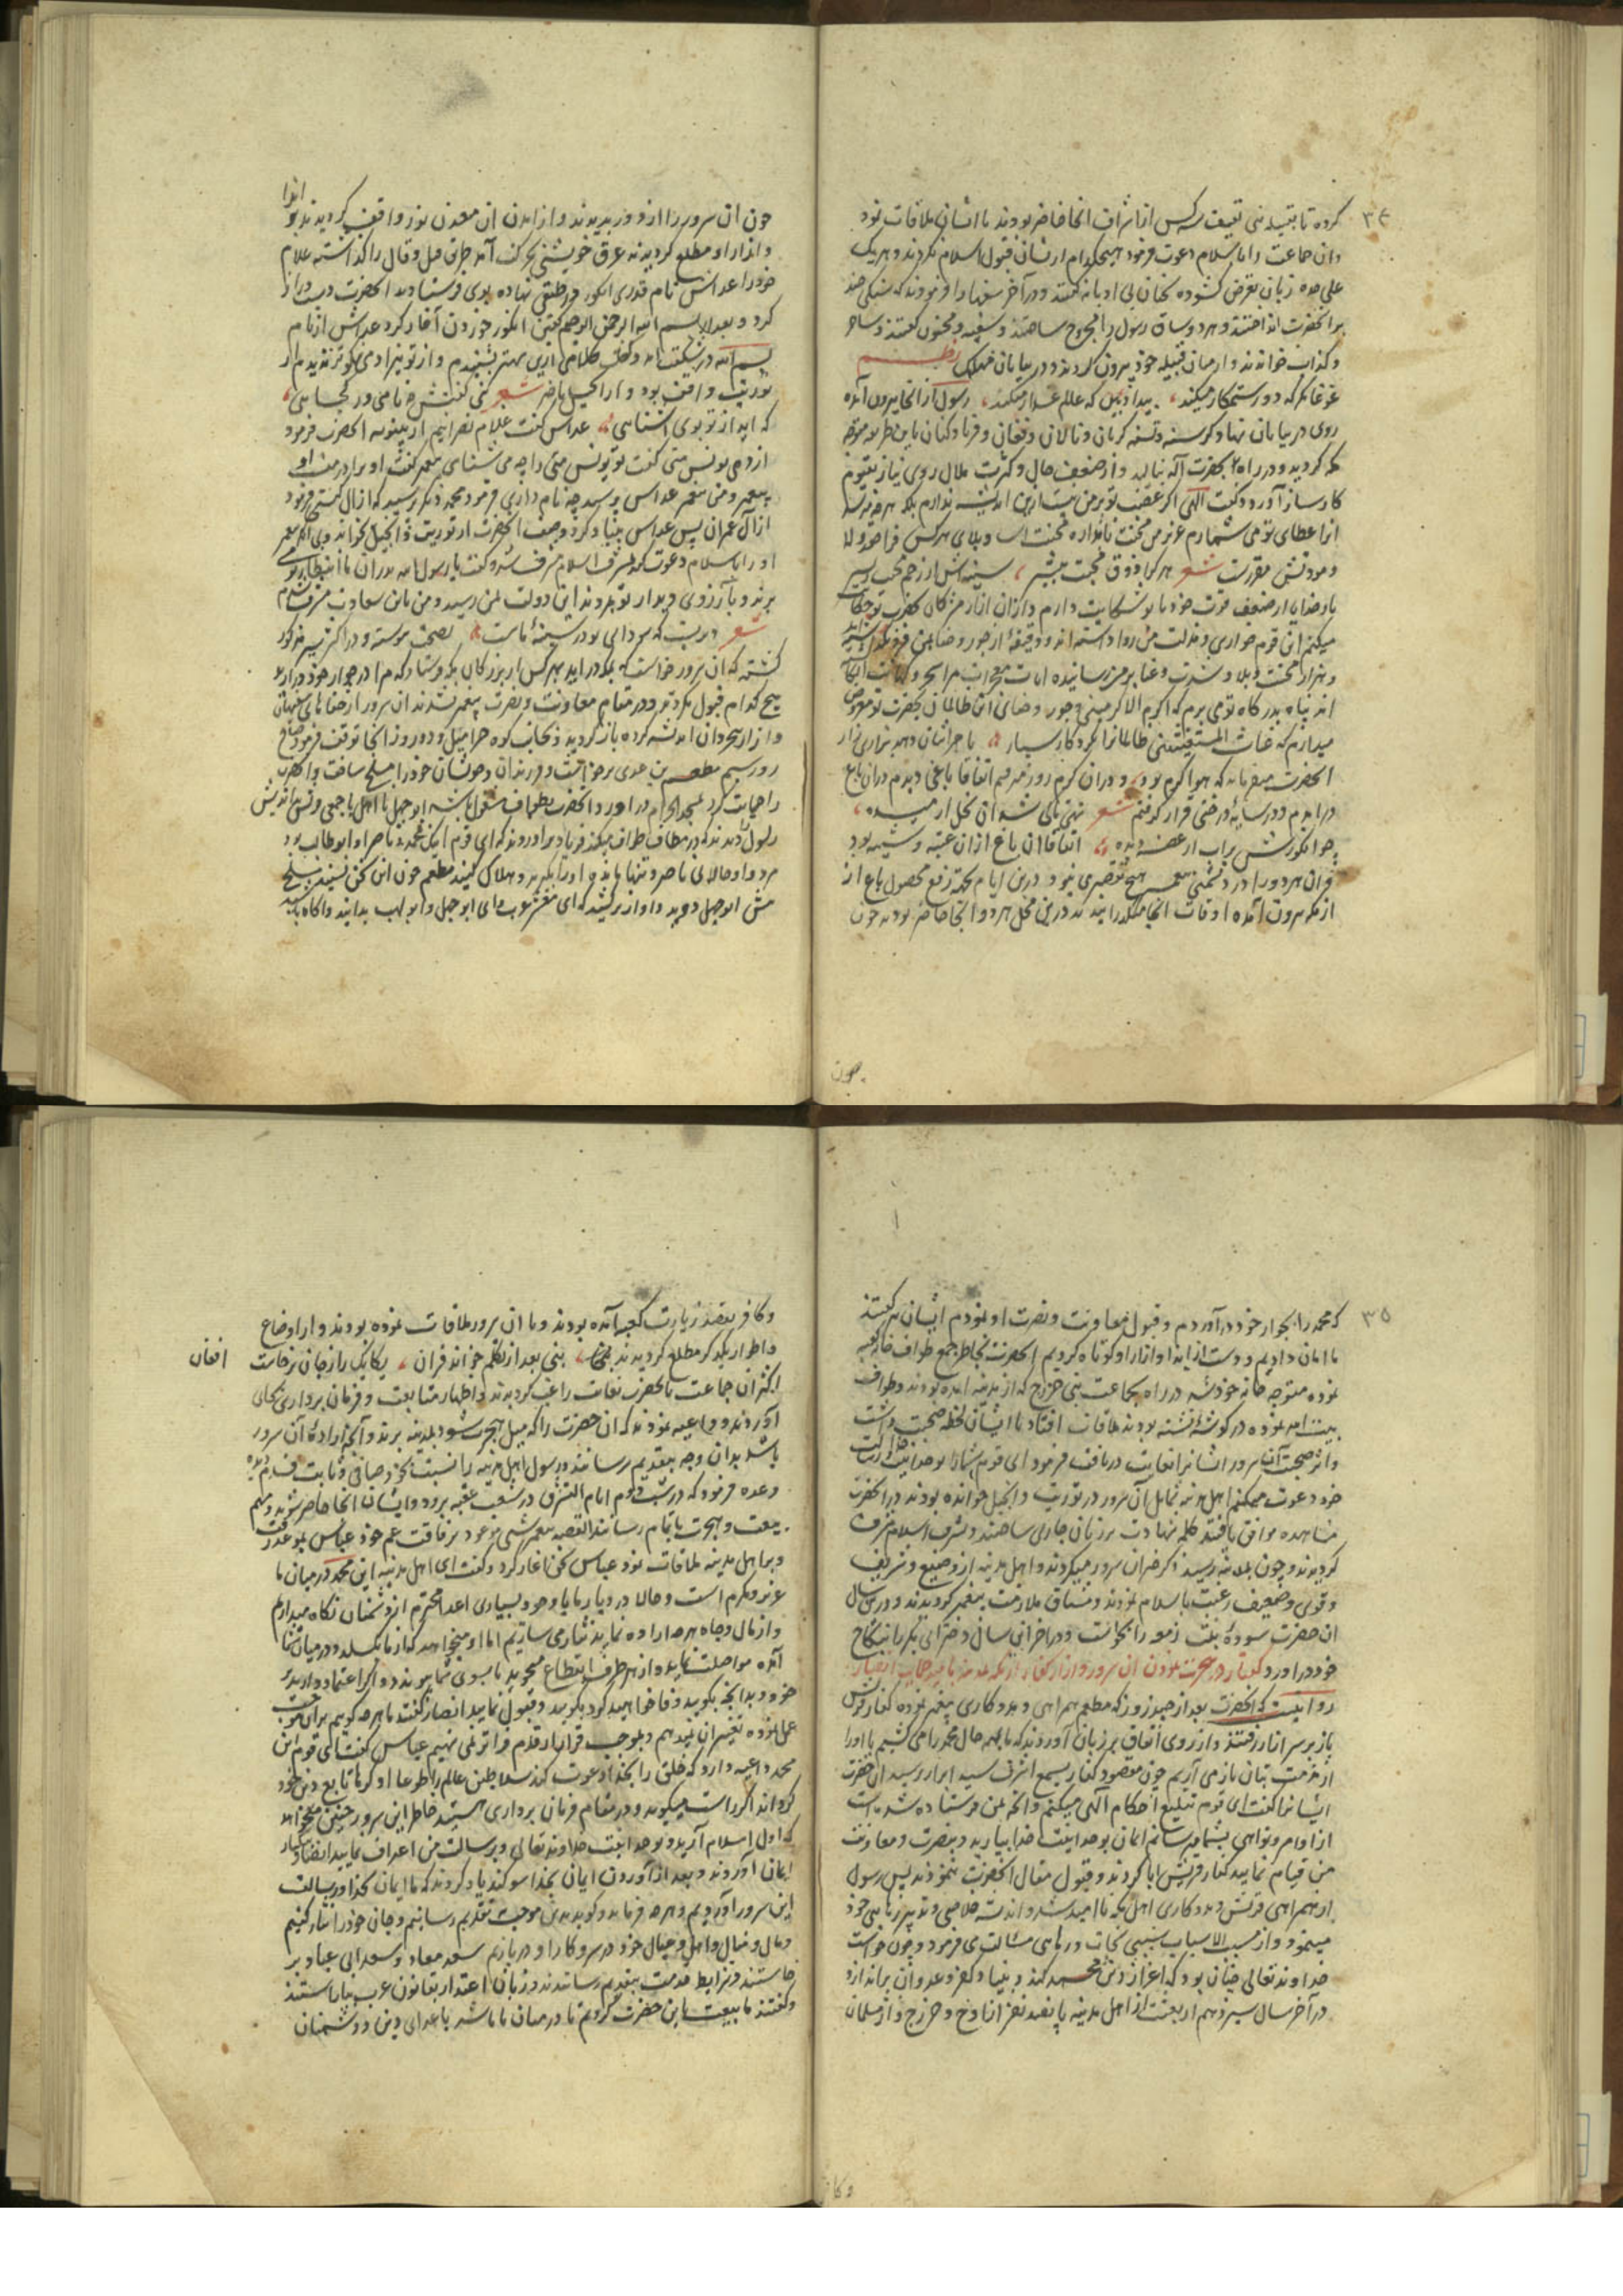 ۳۴
کرده تا بقبیله بنی ثقیف سه کس از اشراف انجا حاضر بودند با ایشان ملاقات نمود
وان جماعت را باسلام دعوت فرمود هیچکدام ازیشان قبول اسلام نکردند و هریک
علی حده زبان بتعرض کشوده سخنان بی ادبانه گفتند و در آخر سفها را فرمودند که سنگی چند
بر انحضرت انداختند و هر دو ساق رسول را مجروح ساختند و سفیه و مجنون گفتند و ساحر
و کذاب خواندند و از میان قبیله خود بیرون کردند و در بیابان مهلک نظم
غوغا نکر که دور ستمکار میکند بیداد بین که عالم غدار میکند رسول از انجا بیرون آمده
روی در بیابان نهاد و گرسنه و تشنه گریان و نالان و فغان و فریاد کنان باین طریق متوجه
مکه گردید و در راه بحضرت آله بنالید و از ضعف حال و کثرت ملال روی نیاز بقیوم
کارساز آورد و گفت الهی اگر غضب تو بر من نیست ازین اندیشه ندارم بلکه هرچه رسد
انرا عطای تو می شمارم
شعر هر کرا ذوق محبت بیشتر سینه اش از زخم محنت ریش
بار خدایا از ضعف قوت خود با تو شکایت دارم
میکنم این قوم خواری و مذلت من روا داشته اند و دقیقهٔ از جور و جفا
و هزار محنت و بلا و شدت و عنا بر من رسانیده
اند پناه بدرگاه تو می برم که اکرم الاکرمینی و جور و جفای این ظالمان بحضرت تو معروض
میدارم که غیاث المستغیثینی ظالمانرا بخود کار سپار
انحضرت میفرماید که هوا گرم بود و در ان گرم روز میرفتم اتفاقا باغی دیدم در ان باغ
در امدم و در سایهٔ درختی قرار گرفتم شعر
اتفاقا ان باغ از ان عتبه و شیبه بود
و ان هر دو را در دشمنی پیغمبر هیچ تقصیری نبود و درین ایام بجهة رفع محصول باغ از
از مکه بیرون آمده اوقات انجا میگذرانیدند درین محل هر دو انجا حاضر بودند چون
چون
چون ان سرور را از دور بدیدند و از امدن ان معدن نور واقف گردیدند و ایذا
و اذار او مطلع گردیدند عرق خویشی بحرکت آمد طریق قیل و قال را گذاشته غلام
خود را عداش نام قدری انگور در طبقی نهاده بوی فرستادند انحضرت دست دراز
کرد و بعد از بسم الله الرحمن الرحیم گفتن انگور خوردن آغاز کرد عداش از نام
بسم الله در شگفت ماند و گفت کلامی ازین بهتر نشنیدم و از تو نیز ادمی نکوتر ندیدم از
توریت واقف بود و از انجیل باخبر شعر گفتش چه نامی و ز کجایی
که آید از تو بوی آشنایی عداس گفت غلام نصرانیم از نینوه انحضرت فرمود
از دهی یونس متی گفت تو یونس متی را چه می شناسی پیغمبر گفت او برادر منست او
پیغمبر و من پیغمبر عداس پرسید چه نام داری فرمود محمد دیگر پرسید که از ال کیستی فرمود
از آل عمران پس عداس بنیاد کرد وصف انحضرت از توریت و انجیل خواند
او را باسلام دعوت کرد بشرف اسلام مشرف شد و گفت یا رسول الله پدران ما انتظار تو می
بردند و بآرزوی دیدار تو بمردند این دولت بمن رسید و من باین سعادت مشرف شدم
شعر دیریست که سودای تو در سینهٔ ماست بصحت پیوسته و در اکثر سیر مذکور
گشته که ان سرور خواست که بمکه در اید بهر کس از بزرگان مکه فرستاد که مرا در جوار خود در ارید
هیچ کدام قبول نکردند و در مقام معاونت و نصرت پیغمبر نشدند ان سرور از جفاهای سفیهان
و ازار بیخردان اندیشه کرده باز گردید و بجانب کوه حرا میل و دو روز انجا توقف فرمود
روز سیم مطعم بن عدی برخواست و فرزندان و خویشان خود را مسلح ساخت و انحضرت
را حمایت کرد بمسجد الحرام در اورد و انحضرت بطواف مشغول باشد ابوجهل با اهل با جمعی قریش
رسول را دیدند که در مطاف طواف میکند فریاد براوردند که ای قوم اینک محمد ناصر او ابوطالب بود
مرد و او حالا بی ناصر و تنها مانده او را بگیرید و هلاک کنید مطعم چون این سخن شنید
پیش ابوجهل دوید و اواز برکشید که ای معشر عرب و ای ابوجهل و ابولهب بدانید و اکاه باشید
۳۵
که محمد را بجوار خود در آوردم و قبول معاونت و نصرت او نمودم ایشان نیز گفتند
ما امان دادیم و دست از ایذا و ازار او کوتاه کردیم انحضرت بخاطر جمع طواف خانه کعبه
نموده متوجه خانه خود شد در راه بجماعت بنی خزرج که از مدینه امده بودند و طواف
بیت الله نموده در گوشهٔ نشسته بودند ملاقات افتاد با ایشان لحظه صحبت داشت
و اثر صحبت ان سرور ایشانرا بغایت دریافت فرمود ای قوم شما را بوحدانیت خدا و رسالت
خود دعوت میکنم اهل مدینه شمایل آن سرور در توریت و انجیل خوانده بودند در انحضرت
مشاهده موافق یافتند کلمه شهادت بر زبان جاری ساختند و بشرف اسلام مشرف
گردیدند و چون بمدینه رسیدند ذکر خیر ان سرور میکردند و اهل مدینه از وضیع و شریف
و قوی و ضعیف رغبت باسلام نمودند و مشتاق ملازمت پیغمبر گردیدند و درین سال
ان حضرت سوده بنت زمعه را بخواست و در اخر این سال دختر ابی بکر را بنکاح
خود در اورد گفتار در هجرت نمودن ان سرور از ازار کفار از مکه بمدینه با امید حمایت انصار
روایتست که انحضرت بعد از چند روز که مطعم همراهی و مددکاری پیغمبر نموده کفار قریش
باز بر سر ازار رفتند و از روی اتفاق بر زبان آوردند که ما بهر حال محمد را می کشیم یا او را
از مذمت بتان باز می آریم چون مقصود کفار بسمع اشرف سید ابرار رسید ان حضرت
ایشانرا گفت ای قوم تبلیغ احکام آلهی میکنم و انچه بمن فرستاده شده است
از اوامر و نواهی بشما میرسانم ایمان بوحدانیت خدا بیارید و بنصرت و معاونت
من قیام نمایید کفار قریش ابا کردند و قبول مقال انحضرت ننمودند پس رسول
از همراهی قریش و مددکاری اهل مکه ناامید شد و اندیشه خلاصی و تدبیر رهایی خود
مینمود و از مسبب الاسباب سببی نجات و رهایی مسألت می فرمود و چون خواست
خداوند تعالی چنان بود که اعزاز دین محمد کند و بنیاد کفر و عدوان براندازد
در آخر سال سیزدهم از بعثت از اهل مدینه پانصد نفر از اوس و خزرج و از مسلمان
و کا
و کافر بقصد زیارت کعبه آمده بودند و با ان سرور ملاقات نموده بودند و از اوضاع
و اطوار یکدیگر مطلع گردیدند نبی بعد از تکلم خواند قران یکایک را ز جان برخاست افغان
اکثر ان جماعت بانحضرت بغایت راغب گردیدند و اظهار متابعت و فرمان برداری بجای
آوردند و داعیه نمودند که ان حضرت را که میل هجرت شود بمدینه برند و آنچه اراده آن سرور
باشد بدان وجه بتقدیم رسانند و رسول اهل مدینه را نسبت بخود صافی و ثابت قدم دیده
وعده فرمود که در شب دوم ایام التشریق در شعب عقبه برود و ایشان انجا حاضر شوند و مهم
بیعت و هجرت باتمام رسانند القصه پیغمبر شب موعود برفاقت عم خود عباس بموعد رفت
و با اهل مدینه ملاقات نمود عباس سخن اغاز کرد و گفت ای اهل مدینه این محمد در میان ما
عزیز و مکرم است و حالا در دیار ما با وجود بسیاری اعدا محترم از دشمنان نگاه میداریم
و از مال و جاه هرچه اراده نماید نثار می سازیم اما او میخواهد که از ما بگسلد و در میان شما
آمده مواصلت نماید و از هر طرف انقطاع میجوید تا بسوی شما پیوندد و اگر اعتماد دارید بر
خود و بدانچه بگویید وفا خواهید کرد بگویید و قبول نمایید انصار گفتند ما هرچه گوییم بران موجب
عمل نموده تغییر ان ندهیم و بموجب قرارداد قدم فراتر نمی نهیم عباس گفت ای قوم این
محمد داعیه دارد که خلق را بخدا دعوت کند سلاطین عالم را طوعا او کرها تابع دین خود
گرداند اگر راست میگویید و در مقام فرمان برداری هستید خاطر این سرور چنین میخواهد
که اول اسلام آرید و بوحدانیت خداوند تعالی و برسالت من اعتراف نمایید انصار
ایمان آوردند و بعد از آوردن ایمان بخدا سوگند یاد کردند که ما ایمان بخدا و رسالت
این سرور آوردیم و هرچه فرماید و گوید بدین موجب بتقدیم رسانیم و جان خود را نثار کنیم
و مال و منال و اهل و عیال خود در سر و کار او در بازیم سعد معاذ و سعد ابی عباده بر
خاستند و شرایط خدمت بتقدیم رسانیدند و زبان اعتذار بقانون عرب بیاراستند
و گفتند ما بیعت باین حضرت کردیم تا در میان ما باشد با اعدای دین و دشمنان